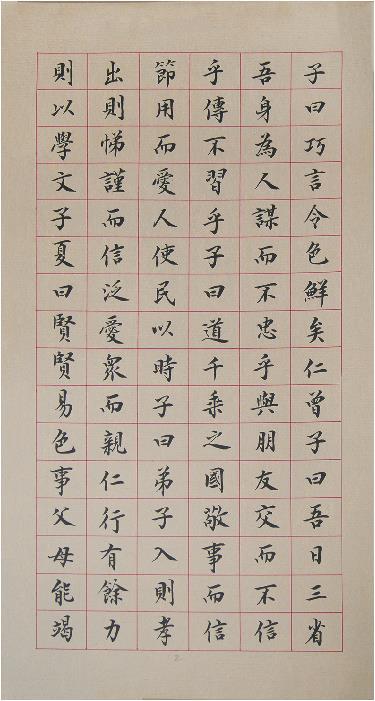 子曰巧言令色鮮矣仁曾子曰吾日三省
吾身為人謀而不忠乎與朋友交而不信
乎傳不習乎子曰道千乘之國敬事而信
節用而愛人使民以時子曰弟子入則孝
出則悌謹而信泛愛眾而親仁行有餘力
則以學文子夏曰賢賢易色事父母能竭
2